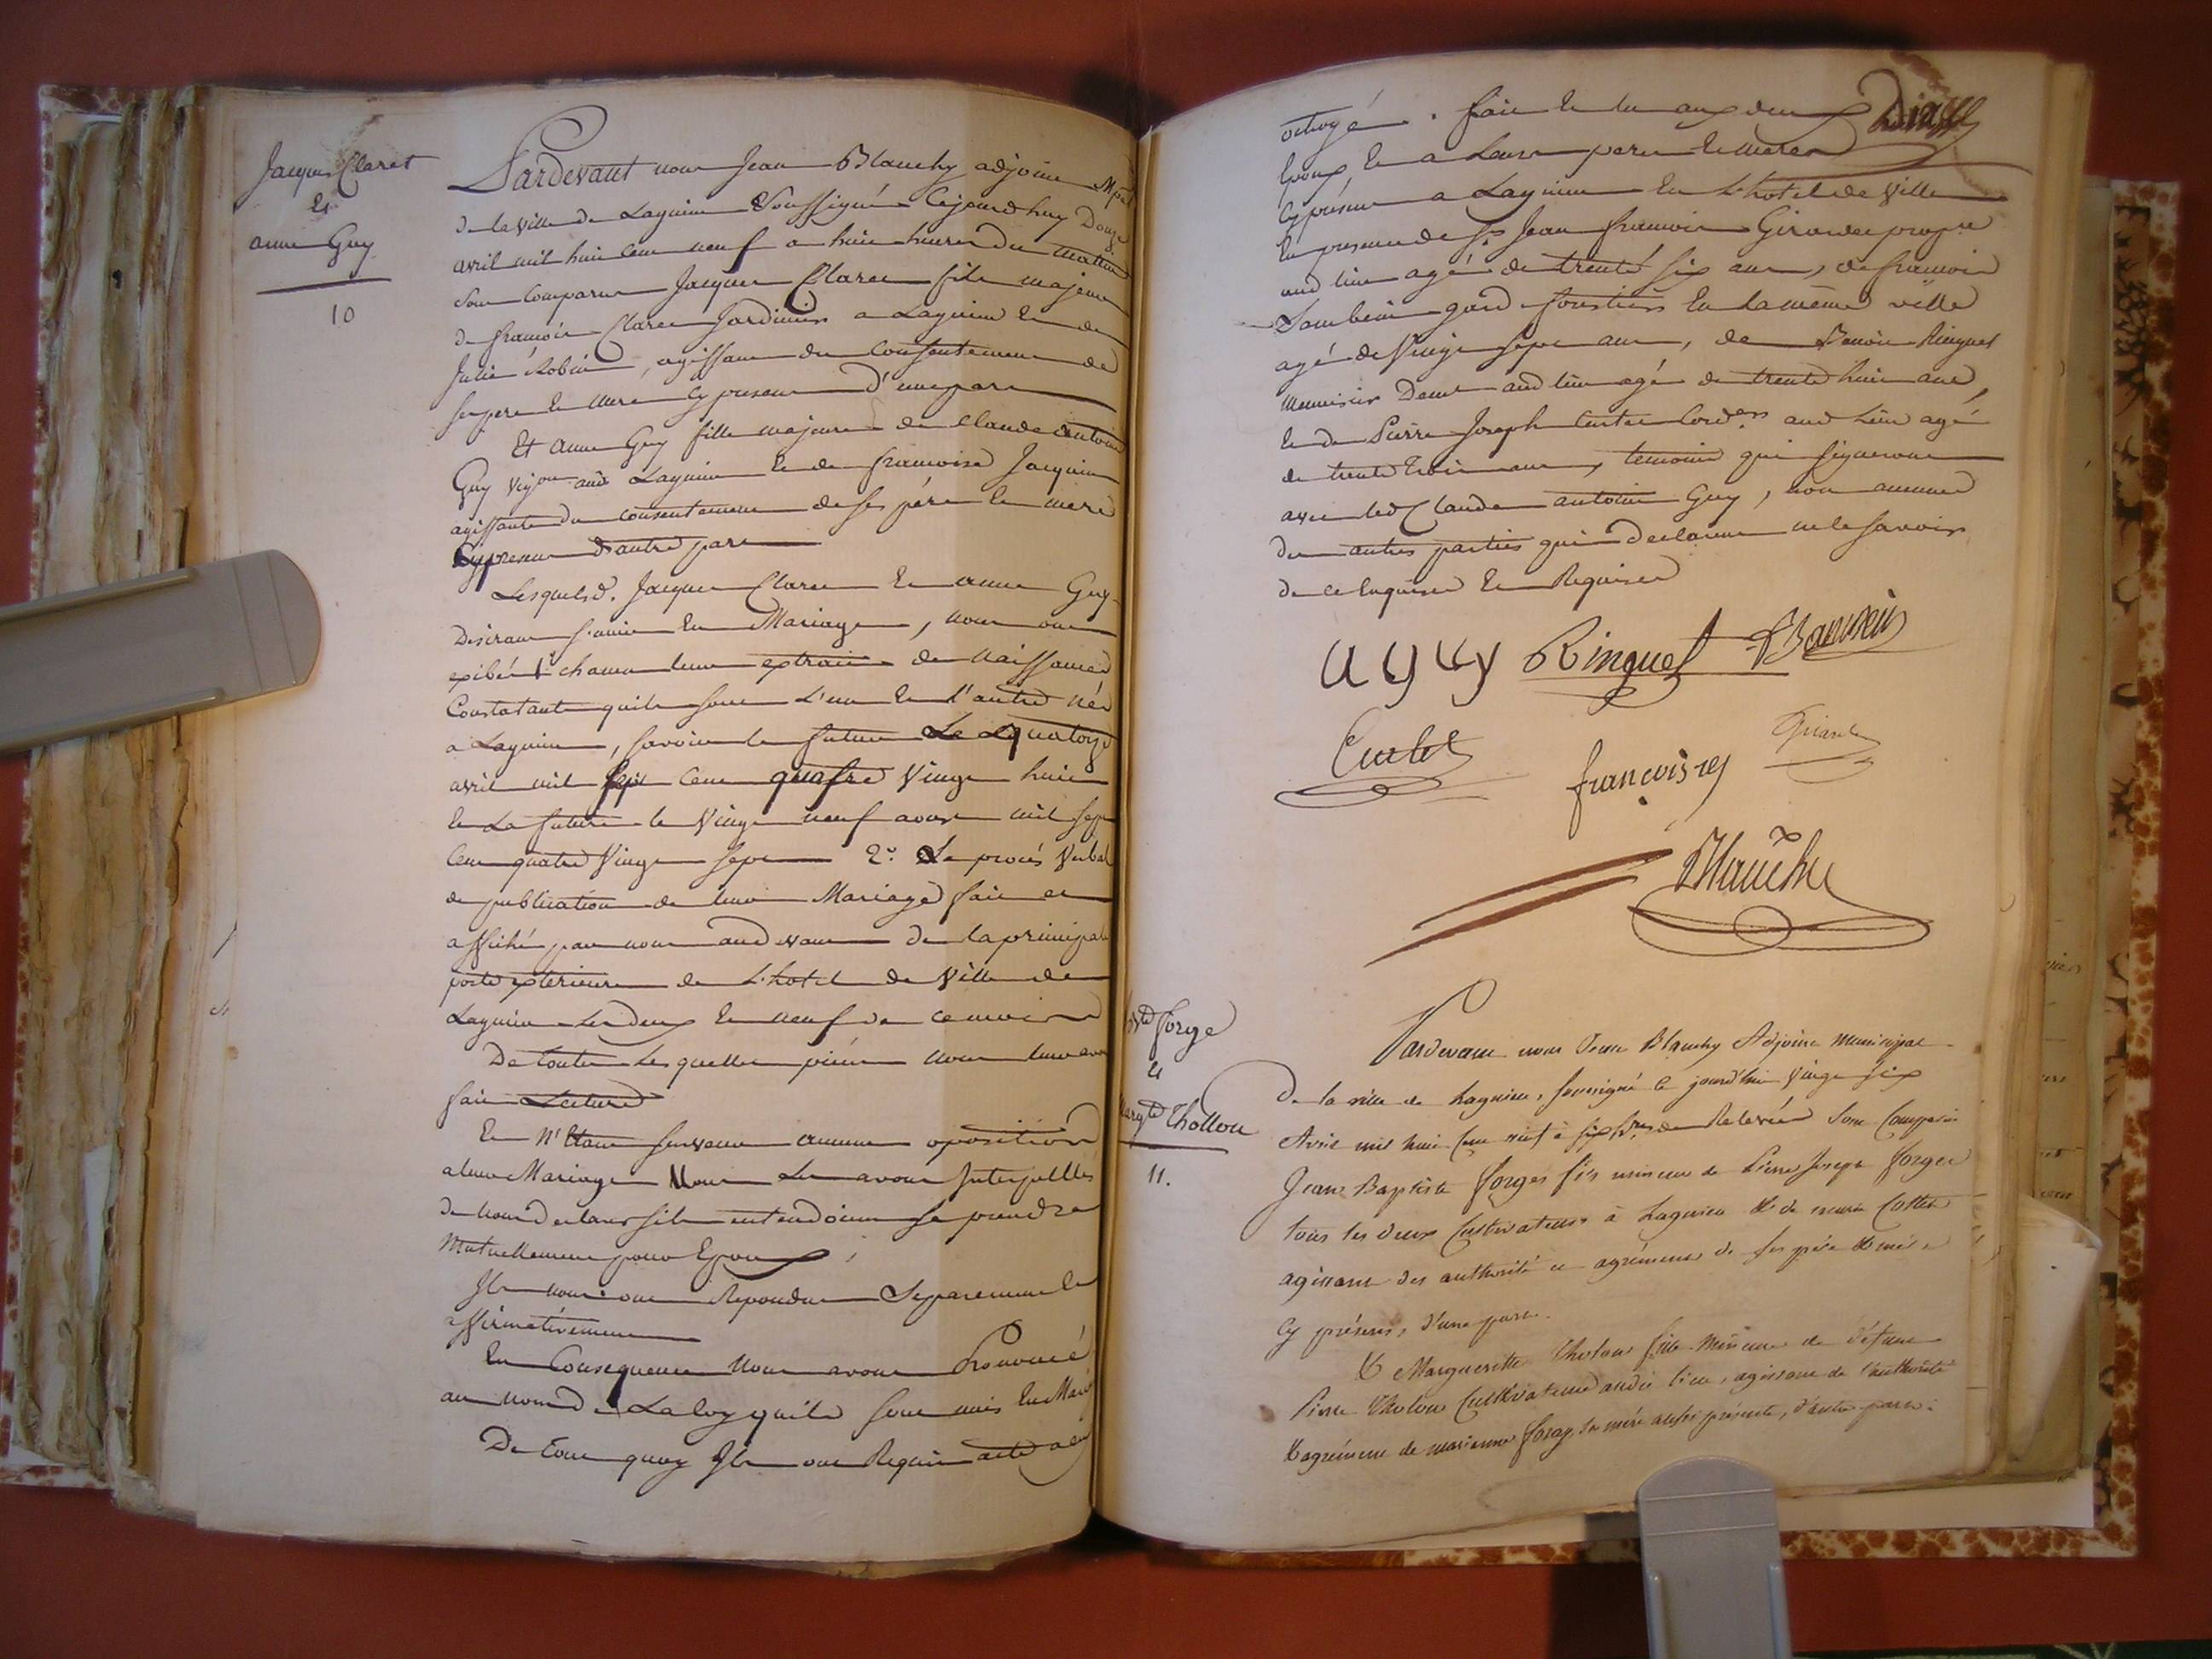 Jacques Claret
et
anne Guy
10
Pardevant nous Jean Blanchy adjoint Mpal
de la ville de Lagnieu Soussigné Cejourdhuy Douze
avril mil huit cent neuf a huit heures du matin
Sont comparus Jacques Claret fils majeur
de françois Claret Jardinier a Lagnieu et de
Julie Robin, agissant du Consentement de
ses pere et mere cy presens d'une part
Et anne Guy fille majeure de Claude antoine
Guy audt Lagnieu et de francoise Jacquin
agissante du consentement de ses pére et mere
Cy presens d'autre part
Lesquels d. Jacques Claret et anne Guy
Desirant s'unir en Mariage, nous ont
exibé 1° chacun leur extrait de naissance
Constatant quils sont L'un et l'autre nés
a Lagnieu, savoir le futur Le quatorze
avril mil sept cent quatre vingt huit
et La future le vingt neuf aoust mil sept
cent quatre vingt sept 2° Le procès verbal
de publication de leur Mariage fait et
affiché par nous audevant de la principale
porte exterieure de L'hotel de Ville de
Lagnieu les deux et neuf de ce mois
De toutes Lesquelles piéces nous leur avons
fait Lecture
Et N'Etant survenu aucune oposition
a leur Mariage Nous Les avons Interpellés
de nous declarer sils entendoient se prendre
Mutuellement pour Epoux,
Ils nous ont Repondu Separement et
affirmativement
En Consequence Nous avons Prononcé
au nom de La loy quils sont unis En Mari
De tout quoy Ils ont Requis acte a eux
octroyé. fait et lu aux deux Dits
Epoux, et a Leurs peres et meres
cy présens a Lagnieu En L'hotel de Ville
En presence de Sr Jean francois Girardet propre
aud lieu agé de trente six ans, de francois
gard forestier En la même ville
agé de Vingt sept ans, de Benoit Ringuet
Menuisier Demt aud lieu agé de trente huit ans,
et de Pierre Joseph Curtet Cordr aud Lieu agé
de trente trois ans, temoins qui signeront
avec led Claude antoine Guy, non aucunes
des autres parties qui Declarent ne le savoir
de ce Enquises et Requises
a guy Ringuet
Curtet
Girardet
Blanchy
bte forge
et
margte Thollon
11.
Pardevant nous Jean Blanchy Adjoint municipal
De la ville de Lagnieu, soussigné ce jourd'hui vingt six
Avril mil huit cent neuf à six hres de Relevée Sont Comparus
Jean Baptiste forges fils mineur de Pierre Joseph forges
tous les deux Cultivateurs à Lagnieu & de marie Cottet
agissant des authorité et agrément de ses père & mère
Cy présens, d'une part.
& Marguerite Tholon fille Mineure de Défunt
Pierre Tholon Cultivateur audit lieu, agissant de l'authorité
& agrément de marianne sa mère aussi présente, d'autre part.